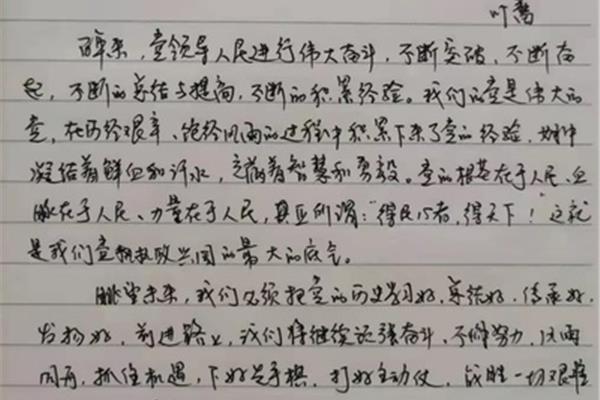 叶蓠
百年来，党领导人民进行伟大奋斗，不断突破，不断奋
起，不断的总结与提高，不断的积累经验。我们的党是伟大的
党，在历经艰辛、饱经风雨的过程中积累下来了党的经验，
凝结着鲜血和汗水，充满着智慧和勇毅。党的根基在于人民、血
脉在于人民、力量在于人民，真正所谓："得民心者，得天下！"这就
是我们党执政兴国的最大的底气。
眺望未来，我们必须把党的历史学习好，总结好，传承好，
发扬好，前进路上，我们将继续 奋斗、不懈努力，风雨
同舟，抓住机遇，下好先手棋，打好主动仗，战胜一切艰难